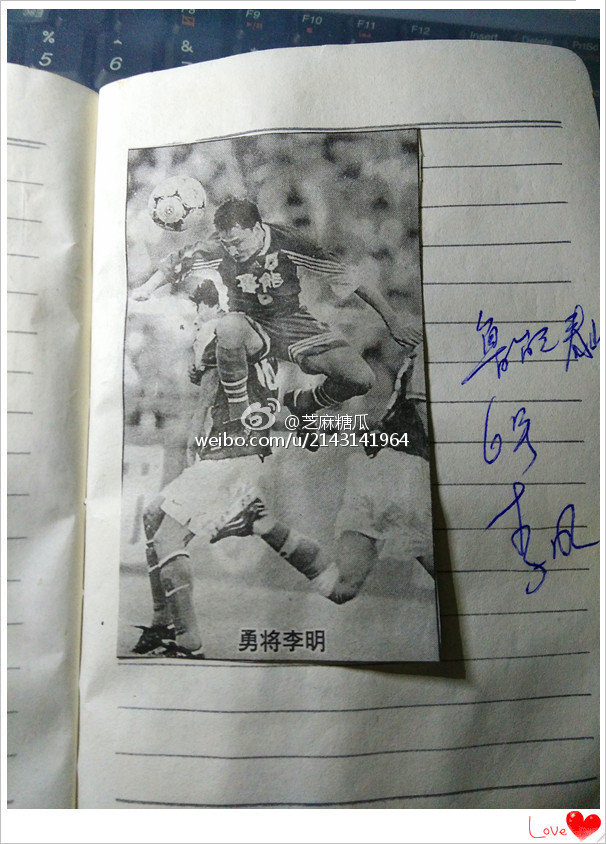 F9
F10
F11
F12
Insert
Delete
PrtSc
%
5
^
6
&
@芝麻糖瓜
weibo.com/u/2143141964
勇将李明
鲁能泰山
6号
李明
Love